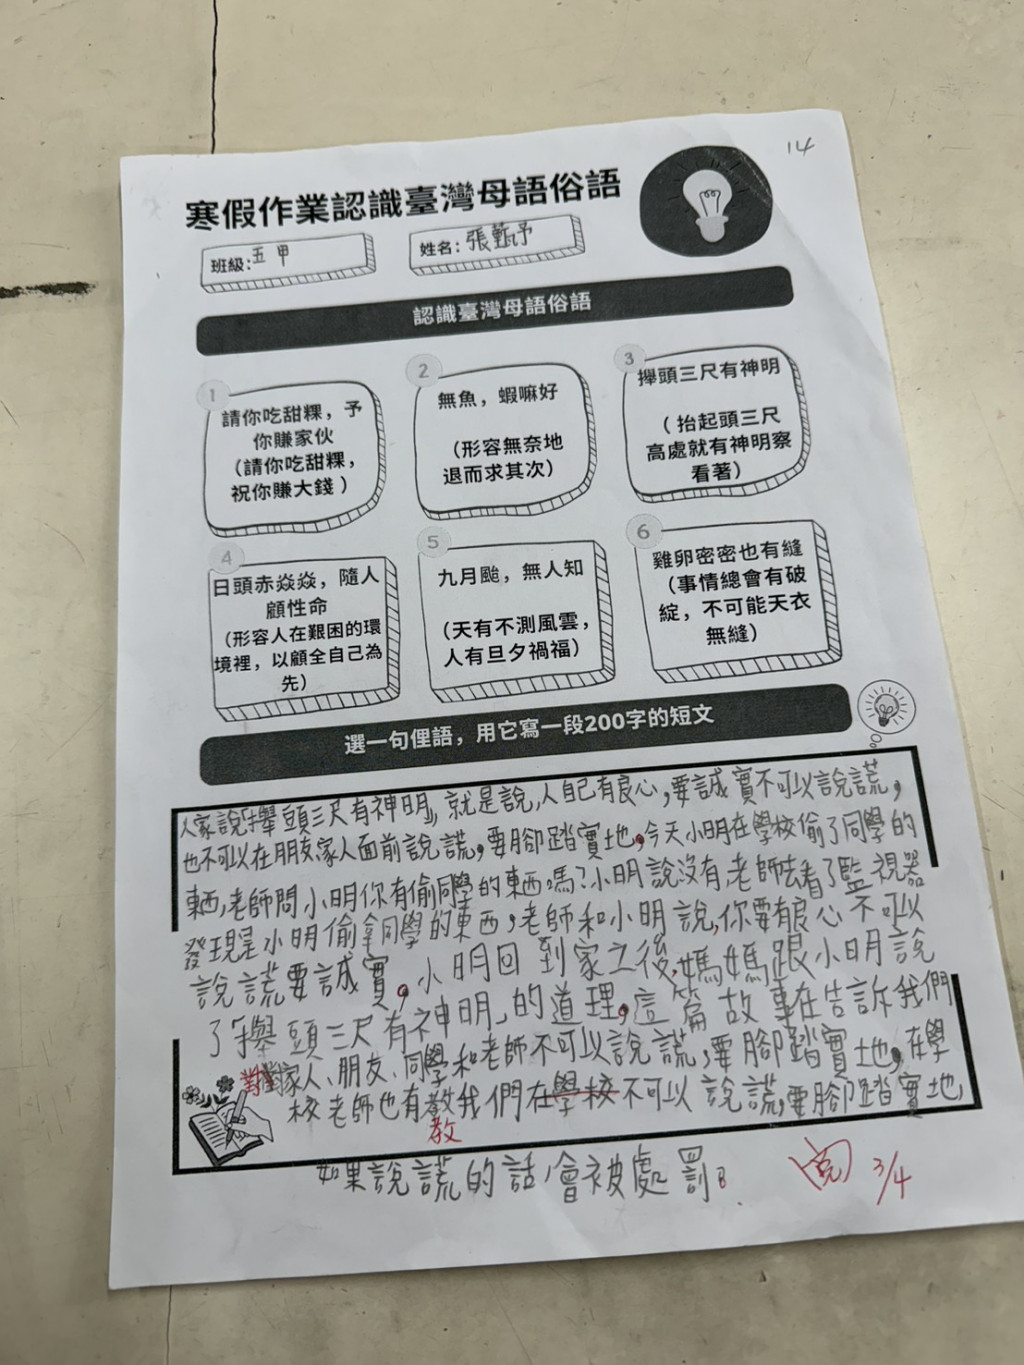 14
寒假作業認識臺灣母語俗語
班級:五甲
姓名:張甄予
認識臺灣母語俗語
1
請你吃甜粿，予
你賺家伙
（請你吃甜粿，
祝你賺大錢）
2
無魚，蝦嘛好
（形容無奈地
退而求其次）
3
攑頭三尺有神明
（抬起頭三尺
高處就有神明察
看著）
4
日頭赤焱焱，隨人
顧性命
（形容人在艱困的環
境裡，以顧全自己為
先）
5
九月颱，無人知
（天有不測風雲，
人有旦夕禍福）
6
雞卵密密也有縫
（事情總會有破
綻，不可能天衣
無縫）
選一句俚語，用它寫一段200字的短文
人家說「舉頭三尺有神明」,就是說,人自己有良心,要誠實不可以說謊,
也不可以在朋友家人面前說謊,要腳踏實地。今天小明在學校偷了同學的
東西,老師問小明你有偷同學的東西嗎?小明說沒有,老師去看了監視器
發現是小明偷拿同學的東西,老師和小明說,你要有良心不可以
說謊要誠實。小明回到家之後,媽媽跟小明說
了「舉頭三尺有神明」的道理。這篇故事在告訴我們
對對家人、朋友、同學和老師不可以說謊,要腳踏實地,在學
校老師也有教我們在學校不可以說謊,要腳踏實地,
教
如果說謊的話,會被處罰。
閱 3/4